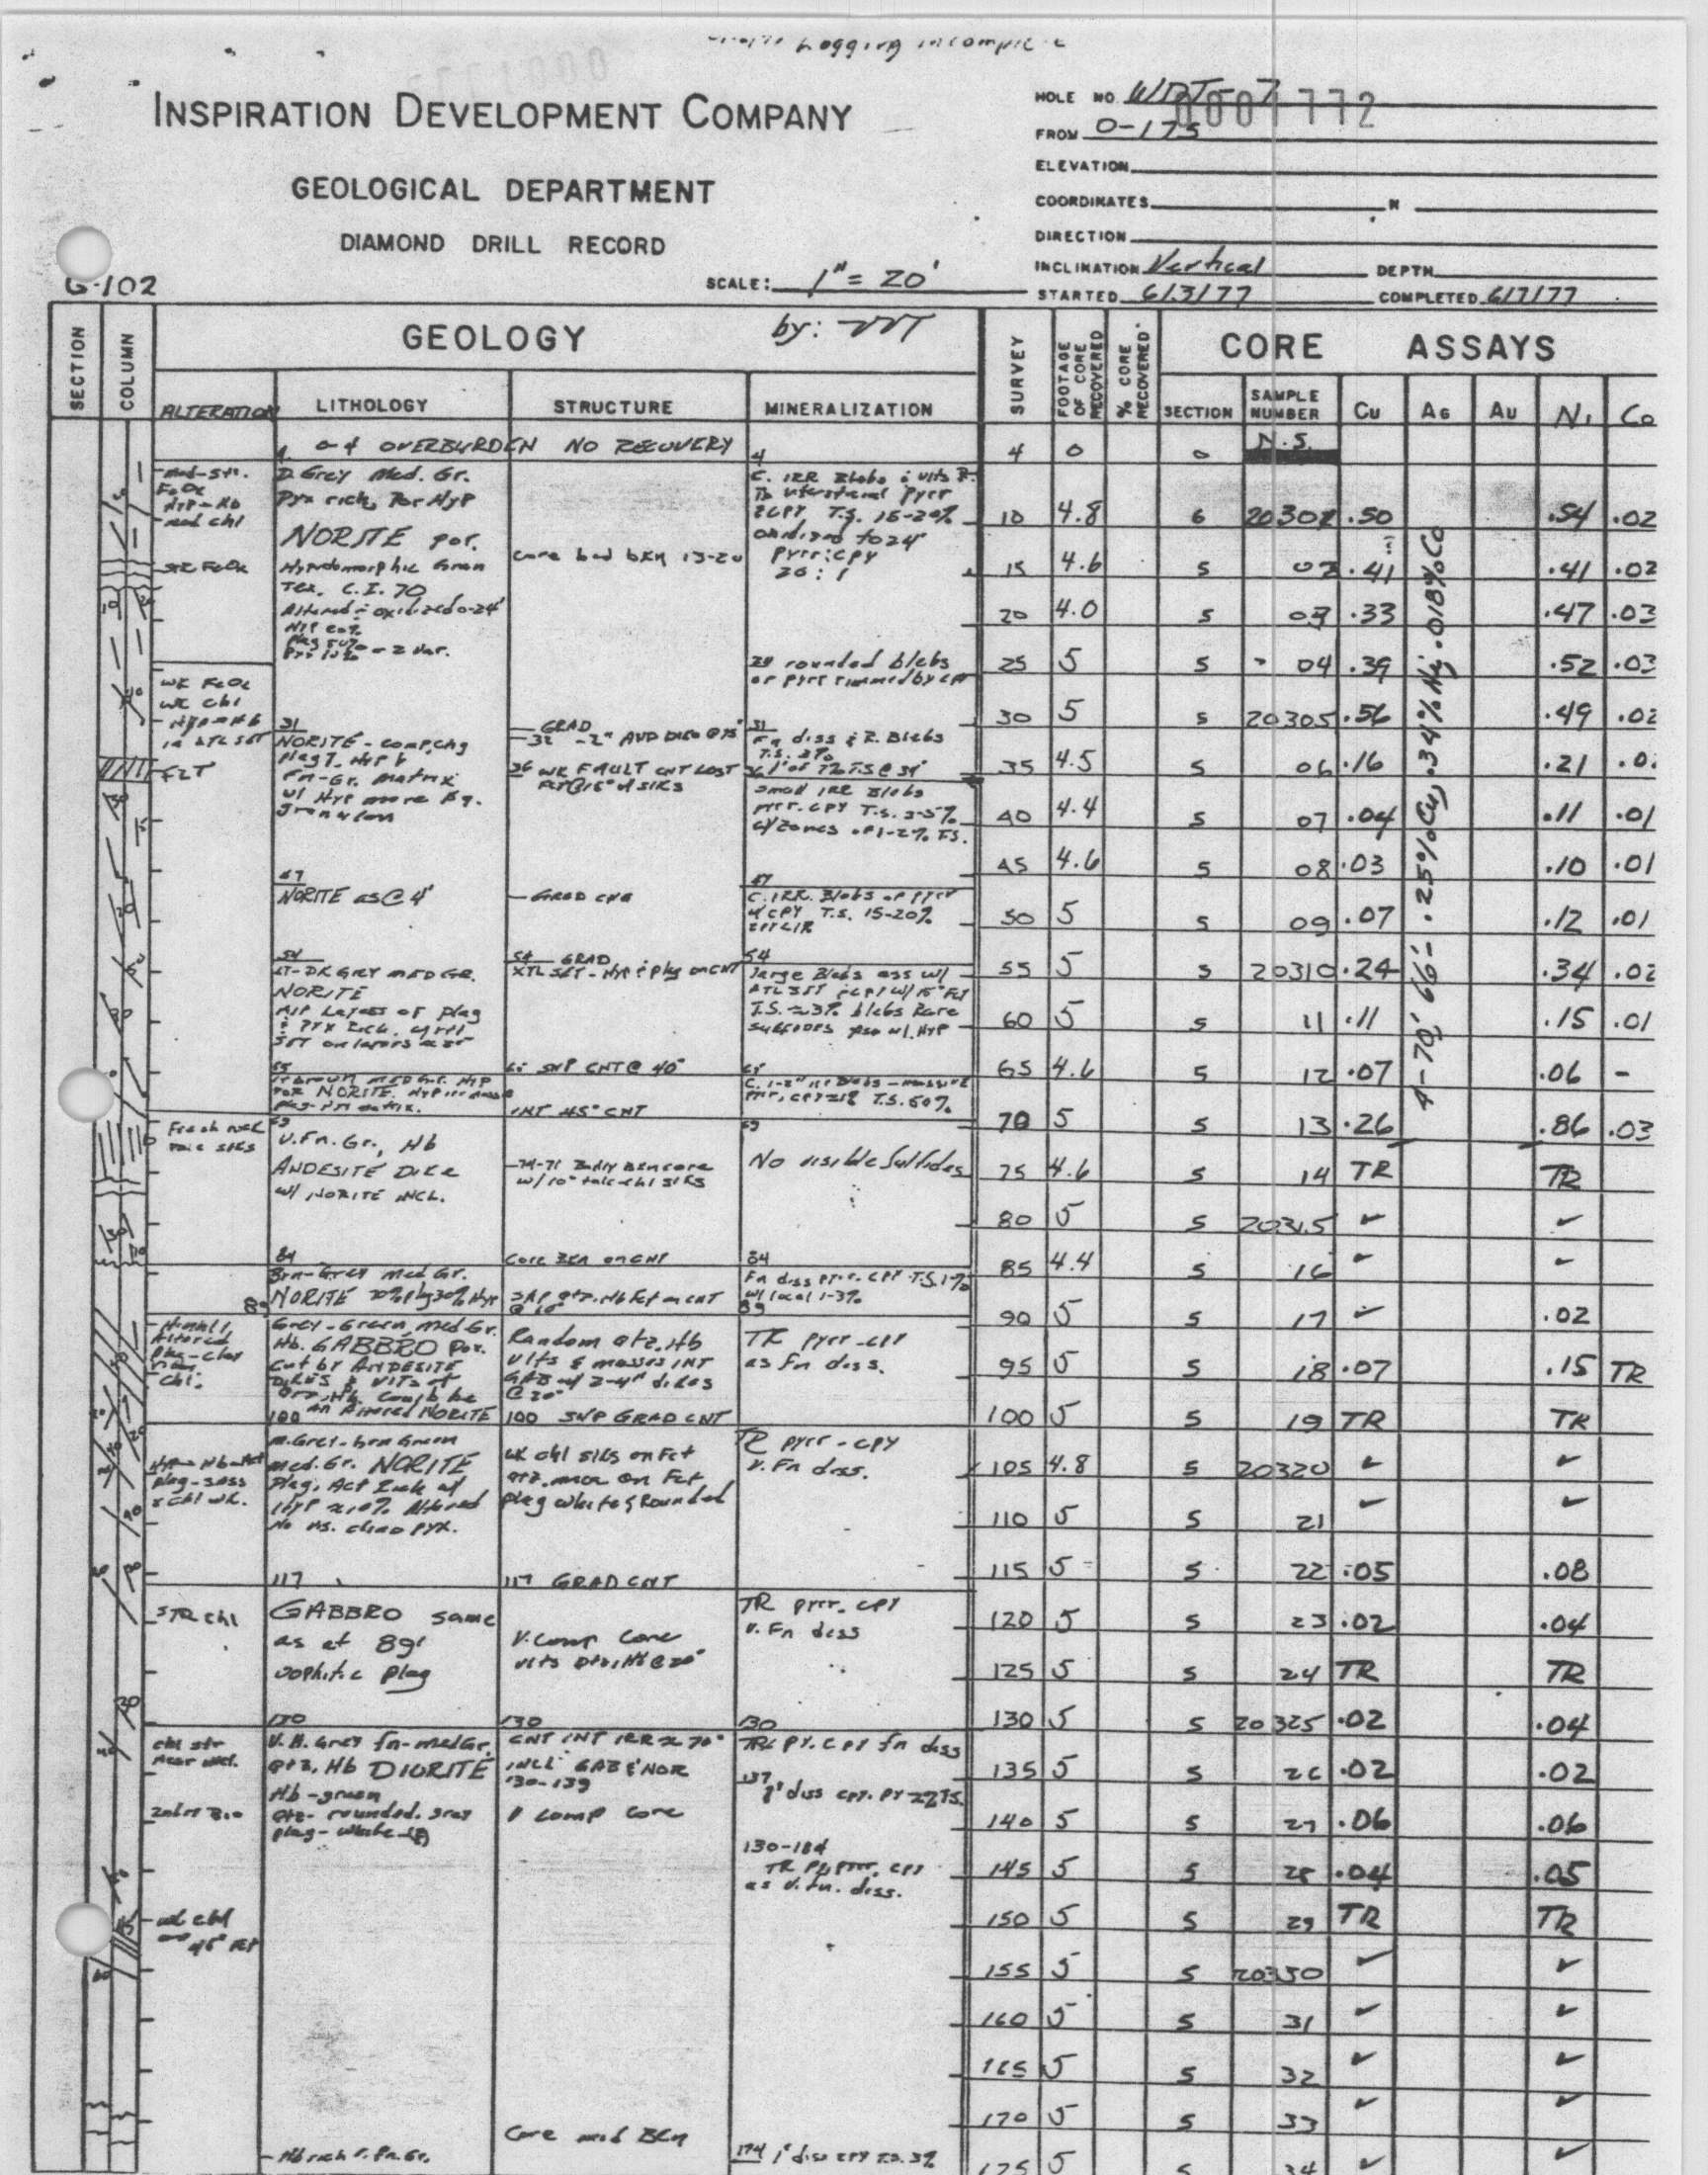 Logging incomplete
INSPIRATION DEVELOPMENT COMPANY
GEOLOGICAL DEPARTMENT
DIAMOND DRILL RECORD
G-102
SCALE: 1" = 20'
HOLE NO. WDT-7
0001772
FROM 0-175
ELEVATION
COORDINATES N
DIRECTION
INCLINATION Vertical DEPTH
STARTED 6/3/77 COMPLETED 6/7/77
SECTION COLUMN GEOLOGY by:
SURVEY FOOTAGE OF CORE RECOVERED % CORE RECOVERED CORE ASSAYS
ALTERATION LITHOLOGY STRUCTURE MINERALIZATION SECTION SAMPLE NUMBER Cu AG AU Ni Co
0-4 OVERBURDEN NO RECOVERY 4
4 0 0 N.S.
D. Grey Med. Gr.
Pyx rich, Por Hyp
NORITE por.
Hypidomorphic Gran
Tex. C.I. 70
Altered & oxidized 0-24'
FeOx
mod chl
C. IRR Blebs & vlts
To interstitial pyrr
& CPY T.S. 15-20%
oxidized to 24'
pyrr:cpy
20:1
Core bad bkn 13-20
10 4.8 6 20301 .50 .54 .02
15 4.6 5 02 .41 .41 .02
20 4.0 5 03 .33 .47 .03
29 rounded blebs
of pyrr rimmed by cpy
25 5 5 04 .39 .52 .03
wk FeOx
wk chl
30 5 5 20305 .56 .49 .02
31
NORITE - comp. chg
Fn-Gr. matrix
w/ Hyp more Eq.
granular
GRAD
36 wk FAULT CNT LOST
31
Fn diss & R. Blebs
T.S. 2%
FLT
35 4.5 5 06 .16 .21
small IRR Blebs
pyrr. CPY T.S. 3-5%
w/ zones of 1-2% T.S.
40 4.4 5 07 .04 .11 .01
45 4.6 5 08 .03 .10 .01
47
NORITE as @ 4'
— GRAD CHG
47
C. IRR. Blebs of pyrr
& CPY T.S. 15-20%
50 5 5 09 .07 .12 .01
4-70', 66'= .25% Cu, .34% Ni, .018% Co
54
LT-DK GREY MED GR.
NORITE
54 GRAD
XTL SET - Hyp & plag on CNT
54
large Blebs ass w/
T.S. ≈ 3% blebs Rare
55 5 5 20310 .24 .34 .02
60 5 5 11 .11 .15 .01
65 SHP CNT @ 40°
65 4.6 5 12 .07 .06 -
65
MED GR. HYP
POR NORITE.
INT 45° CNT
65
T.S. 60%
70 5 5 13 .26 .86 .03
Fresh rock
talc slks
69
V. Fn. Gr., Hb
ANDESITE DIKE
w/ NORITE INCL.
w/ 10° talc-chl slks
69
No visible sulfides
75 4.6 5 14 TR TR
80 5 5 20315 ✓ ✓
84
Brn-Grey med Gr.
NORITE 70% plg 30% Hyp
Core BKN on CNT
84
Fn diss pyrr. CPY T.S. 1%
w/ local 1-3%
85 4.4 5 16 ✓ ✓
89
90 5 5 17 ✓ .02
Grey-Green, Med Gr.
Hb. GABBRO Por.
Cut by ANDESITE
DIKES & VLTS of
Qtz, Hb could be
an Altered NORITE
Random qtz, Hb
vlts & masses INT
GAB w/ 2-4" dikes
@ 20°
TR pyrr - cpy
as fn diss.
95 5 5 18 .07 .15 TR
100 100 SHP GRAD CNT
100 5 5 19 TR TR
M. Grey-brn Green
med. Gr. NORITE
Hyp ≈ 10% Altered
wk chl slks on Fct
qtz. mica on Fct
plag white & Rounded
TR pyrr - cpy
V. Fn diss.
105 4.8 5 20320 ✓ ✓
110 5 5 21 ✓ ✓
115 5 5 22 .05 .08
117 117 GRAD CNT
STR chl
GABBRO same
as at 89'
oophitic plag
V. comp core
vlts qtz, Hb @ 20°
TR pyrr. cpy
V. Fn diss
120 5 5 23 .02 .04
125 5 5 24 TR TR
130 130 130
130 5 5 20325 .02 .04
V. H. Grey fn-med Gr.
qtz, Hb DIORITE
Hb-green
qtz- rounded, gray
plag- white
CNT INT IRR ≈ 70°
INCL GAB & NOR
130-139
V comp core
TR PY. CPY fn diss
137
135 5 5 26 .02 .02
140 5 5 27 .06 .06
130-184
TR PY, pyrr, cpy
as V. fn. diss.
145 5 5 28 .04 .05
wk chl
on 45° Fct
150 5 5 29 TR TR
155 5 5 20330 ✓ ✓
160 5 5 31 ✓ ✓
165 5 5 32 ✓ ✓
170 5 5 33 ✓ ✓
Core mod BKN
Hb rich F. Fn. Gr.
174 1' diss cpy T.S. 3%
175 5 5 34 ✓ ✓